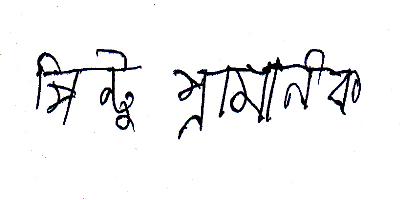 মিন্টু প্রামানিক